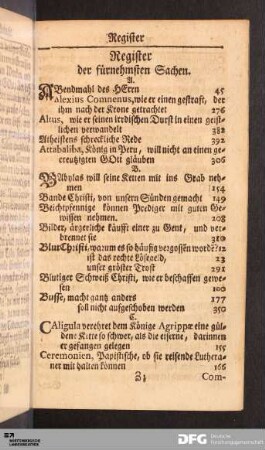 Register
Register
der fürnehmsten Sachen.
A.
ABendmahl des HErrn 45
Alexius Comnenus, wie er einen gestraft, der
ihm nach der Krone getrachtet 276
Altus, wie er seinen irrdischen Durst in einen geist-
lichen verwandelt 382
Atheistens schreckliche Rede 392
Attabaliba, König in Peru, will nicht an einen ge-
creutzigten GOtt gläuben 306
B.
BAbylas will seine Ketten mit ins Grab neh-
men 154
Bande Christi, von unsern Sünden gemacht 149
Beichtpfennige können Prediger mit guten Ge-
wissen nehmen. 208
Bilder, ärgerliche käufft einer zu Gent, und ver-
brennet sie 310
Blut Christi, warum es so häufig vergossen worden? 12
ist das rechte Lösegeld, 23
unser gröster Trost 291
Blutiger Schweiß Christi, wie er beschaffen gewe-
sen 100
Busse, macht gantz anders 177
soll nicht aufgeschoben werden 350
C.
CAligula verehret dem Könige Agrippæ eine gül-
dene Kette so schwer, als die eiserne, darinnen
er gefangen gelegen 155
Ceremonien, Papistische, ob sie reisende Luthera-
ner mit halten können 166
Z 3 Com-
WÜRTTEMBERGISCHE
LANDESBIBLIOTHEK
DFG Deutsche
Forschungsgemeinschaft